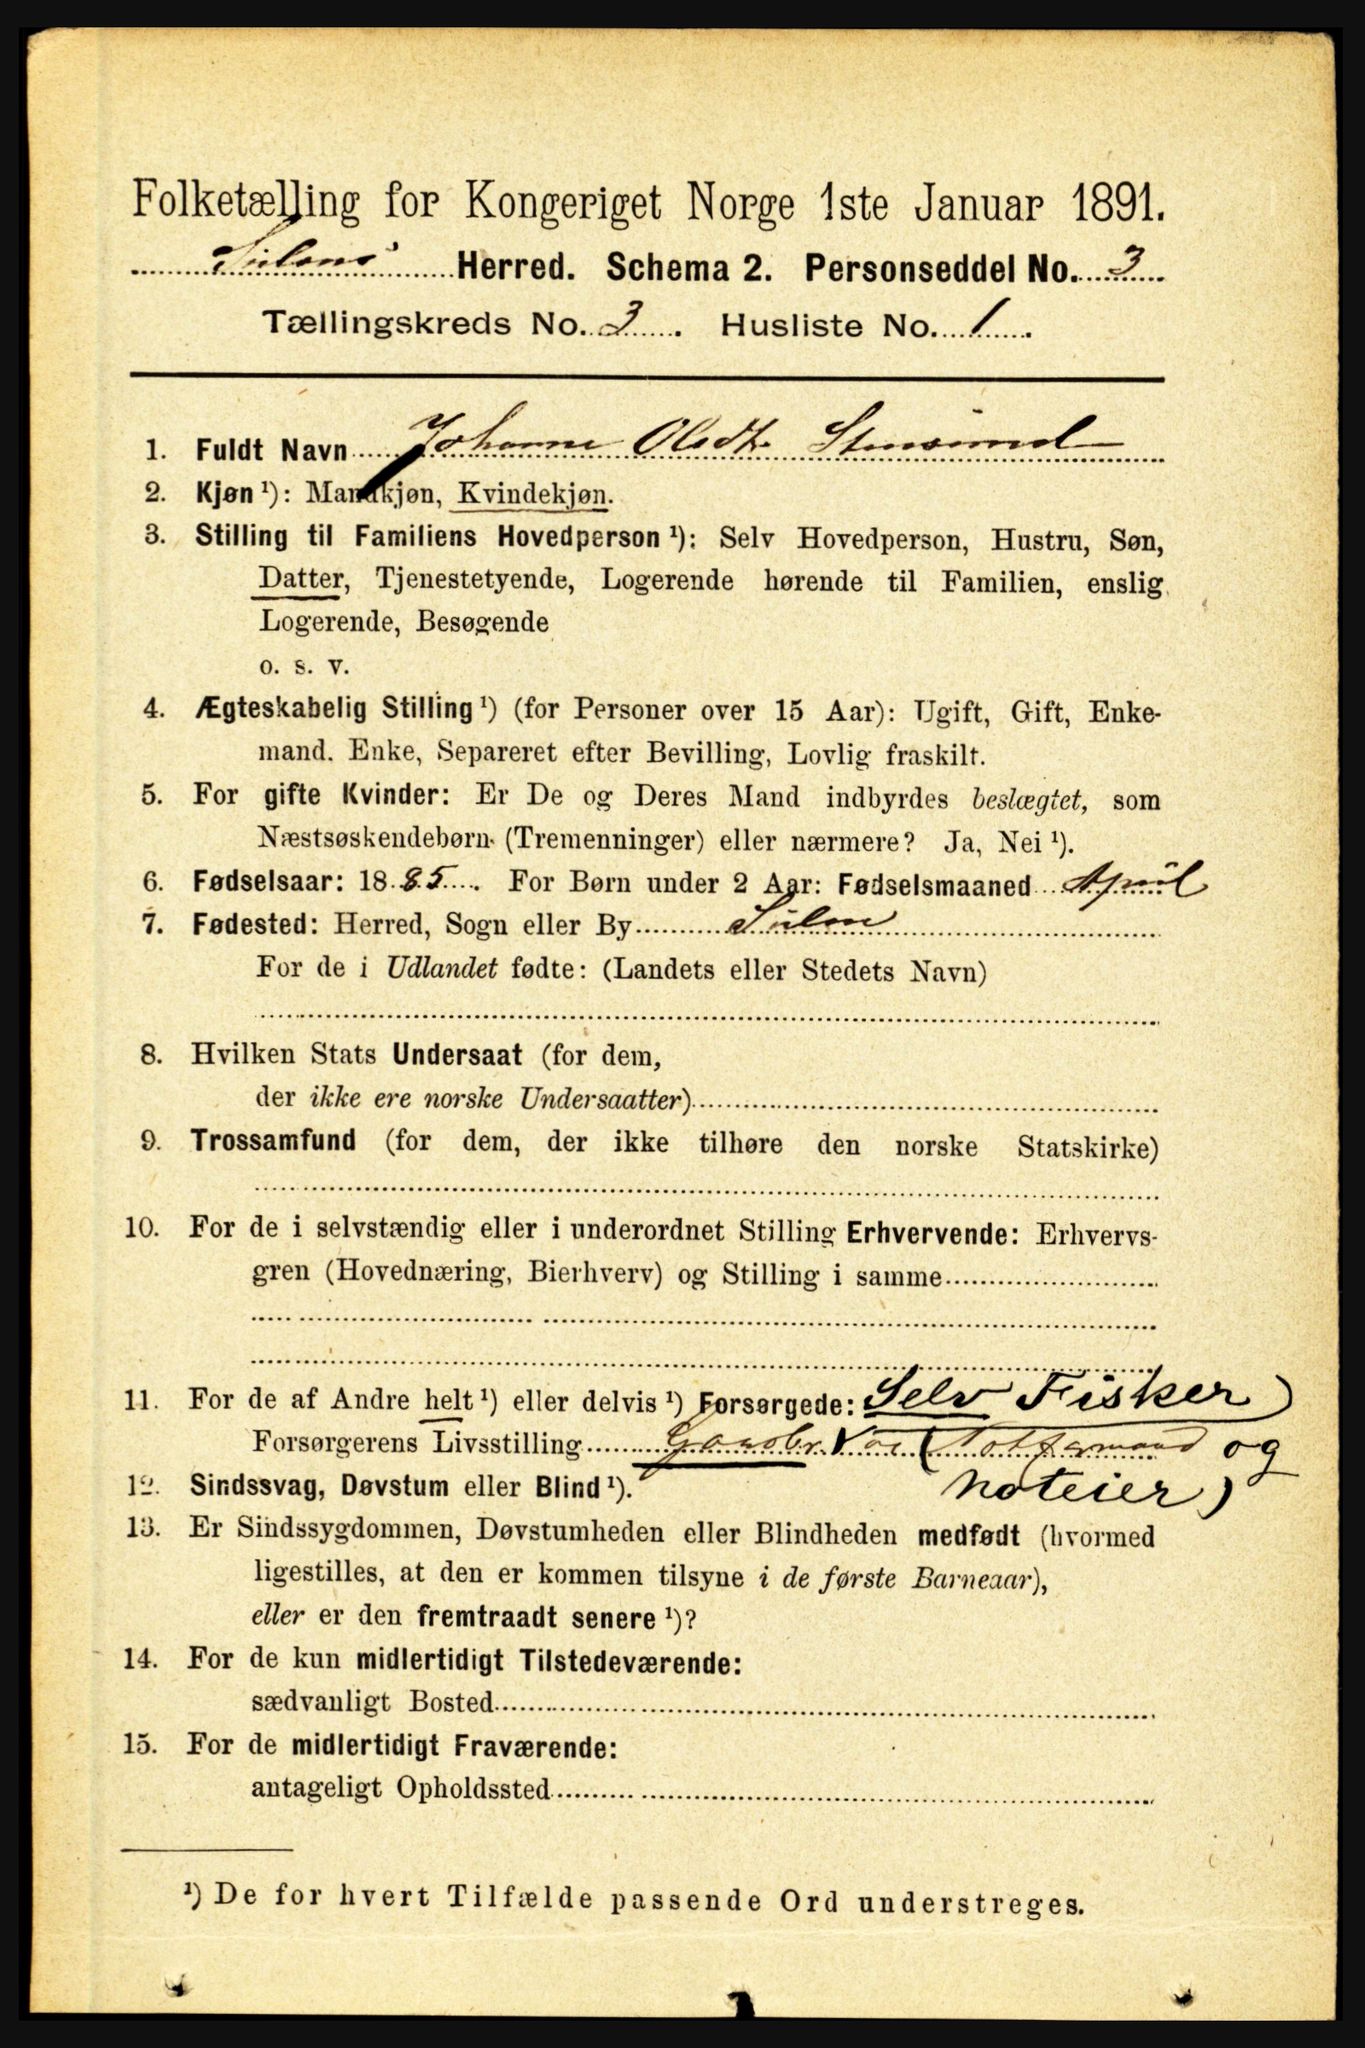 Folketælling for Kongeriget Norge 1ste Januar 1891.
Sulens Herred. Schema 2. Personseddel No. 3
Tællingskreds No. 3. Husliste No. 1.
1. Fuldt Navn Johanne Olsdt. Stensund
2. Kjøn ¹): Mandkjøn, Kvindekjøn.
3. Stilling til Familiens Hovedperson ¹): Selv Hovedperson, Hustru, Søn,
Datter, Tjenestetyende, Logerende hørende til Familien, enslig
Logerende, Besøgende
o. s. v.
4. Ægteskabelig Stilling ¹) (for Personer over 15 Aar): Ugift, Gift, Enke-
mand. Enke, Separeret efter Bevilling, Lovlig fraskilt.
5. For gifte Kvinder: Er De og Deres Mand indbyrdes beslægtet, som
Næstsøskendebørn (Tremenninger) eller nærmere? Ja, Nei ¹).
6. Fødselsaar: 1885. For Børn under 2 Aar: Fødselsmaaned April
7. Fødested: Herred, Sogn eller By Sulen
For de i Udlandet fødte: (Landets eller Stedets Navn)
8. Hvilken Stats Undersaat (for dem,
der ikke ere norske Undersaatter)
9. Trossamfund (for dem, der ikke tilhøre den norske Statskirke)
10. For de i selvstændig eller i underordnet Stilling Erhvervende: Erhvervs-
gren (Hovednæring, Bierhverv) og Stilling i samme
11. For de af Andre helt ¹) eller delvis ¹) Forsørgede: Selv Fisker)
Forsørgerens Livsstilling Gaardbr. (Notformand og
12. Sindssvag, Døvstum eller Blind ¹). noteier)
13. Er Sindssygdommen, Døvstumheden eller Blindheden medfødt (hvormed
ligestilles, at den er kommen tilsyne i de første Barneaar),
eller er den fremtraadt senere ¹)?
14. For de kun midlertidigt Tilstedeværende:
sædvanligt Bosted
15. For de midlertidigt Fraværende:
antageligt Opholdssted
¹) De for hvert Tilfælde passende Ord understreges.